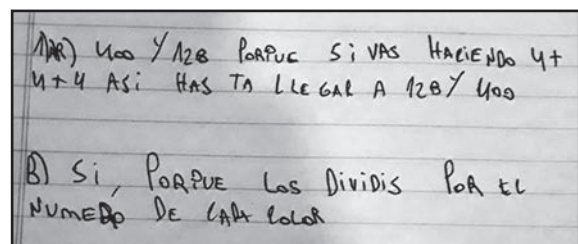 1)A) 400 Y 128 PORPUE Si VAS HACIENDO 4+
4+4 ASi HAS TA LLEGAR A 128 Y 400
B) Si, PORPUE LOS DIVIDIS POR EL
NUMERO DE CADA COLOR